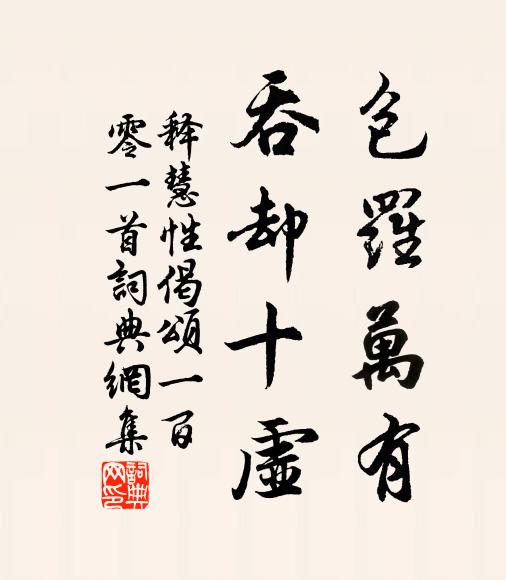 包羅萬有
吞却十虛
釋慧性偈頌一百
零一首詞典網集
詞典網印